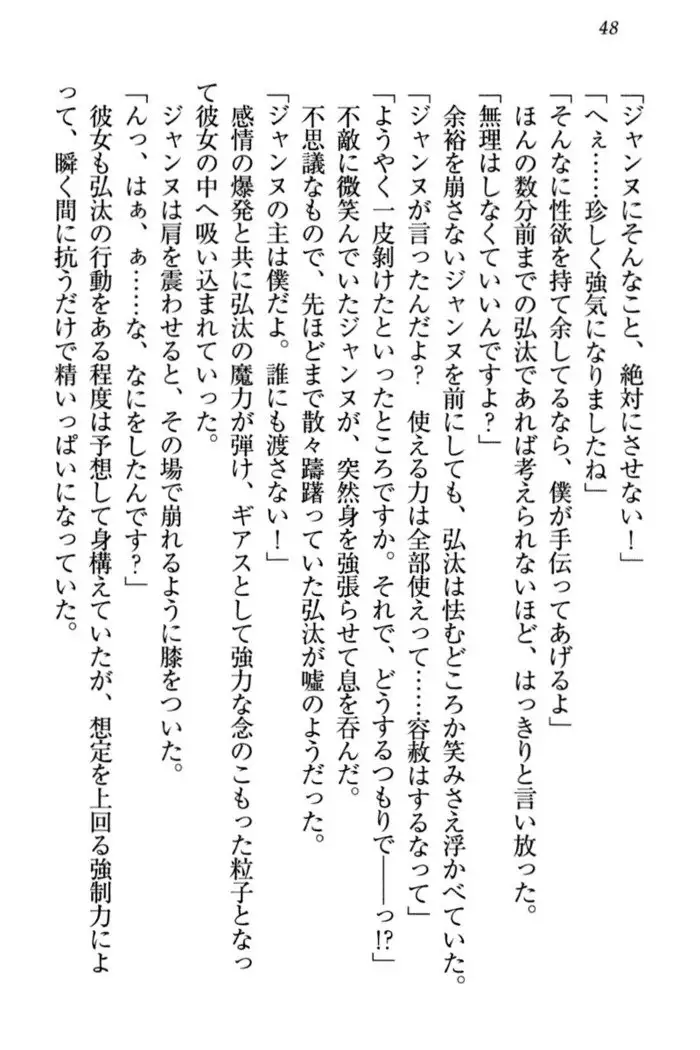 48
「ジャンヌにそんなこと、絶対にさせない！」
「へぇ……珍しく強気になりましたね」
「そんなに性欲を持て余してるなら、僕が手伝ってあげるよ」
ほんの数分前までの弘汰であれば考えられないほど、はっきりと言い放った。
「無理はしなくていいんですよ？」
余裕を崩さないジャンヌを前にしても、弘汰は怯むどころか笑みさえ浮かべていた。
「ジャンヌが言ったんだよ？　使える力は全部使えって……容赦はするなって」
「ようやく一皮剝けたといったところですか。それで、どうするつもりで――っ!?」
不敵に微笑んでいたジャンヌが、突然身を強張らせて息を呑んだ。
不思議なもので、先ほどまで散々躊躇っていた弘汰が嘘のようだった。
「ジャンヌの主は僕だよ。誰にも渡さない！」
感情の爆発と共に弘汰の魔力が弾け、ギアスとして強力な念のこもった粒子となっ
て彼女の中へ吸い込まれていった。
ジャンヌは肩を震わせると、その場で崩れるように膝をついた。
「んっ、はぁ、ぁ……な、なにをしたんです？」
彼女も弘汰の行動をある程度は予想して身構えていたが、想定を上回る強制力によ
って、瞬く間に抗うだけで精いっぱいになっていた。